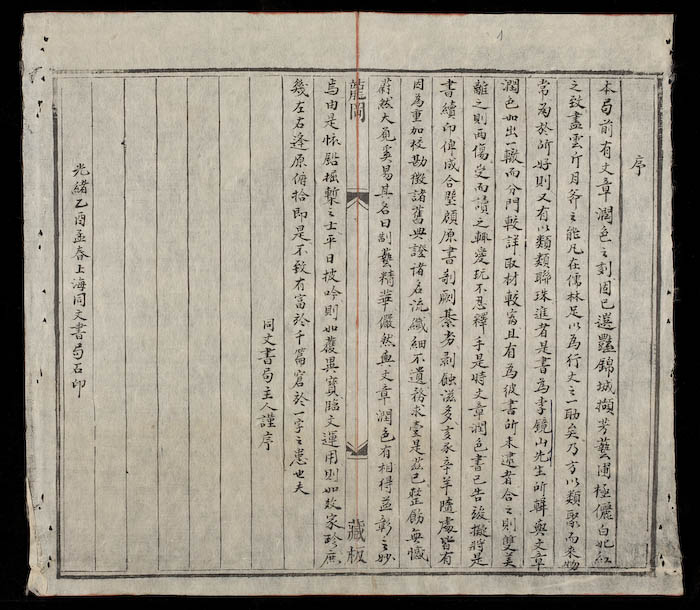 1
序
本局前有文章潤色之刻固已選豔錦城擷芳藝圃極儷白妃紅
之致盡雲斤月斧之能凡在儒林足以為行文之一助矣乃方以類聚而來物
常為於所好則又有以類類聯珠進者是書為李鏡山先生所輯與文章
潤色如出一轍而分門較詳取材較富且有為彼書所未逮者合之則雙美
離之則兩傷受而讀之輒愛玩不忍釋手是時文章潤色書已告竣擬將是
書續印俾成合璧顧原書剞劂綦劣剝蝕滋多亥豕辛羊隨處皆有
因為重加校勘徵諸舊典證諸名流纖細不遺務求壹是茲已整飭無憾
蔚然大觀奚易其名曰制藝精華儼然與文章潤色有相得益彰之妙
龍岡 藏板
焉由是懷鉛握槧之士平日披吟則如獲異寶臨文運用則如故家珍庶
幾左右逢原俯拾即是不致有富於千篇窘於一字之患也夫
同文書局主人謹序
光緒乙酉孟春上海同文書局石印